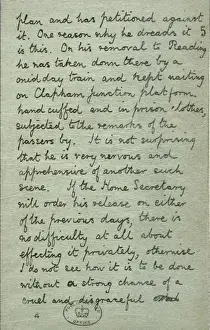 plan and has petitioned against
it. One reason why he dreads it
is this. On his removal to Reading
he was taken down there by a
midday train and kept waiting
on Clapham Junction platform
handcuffed and in prison clothes,
subjected to the remarks of the
passers by. It is not surprising
that he is very nervous and
apprehensive of another such
scene. If the Home Secretary
will order his release on either
of the previous days, there is
no difficulty at all about
effecting it privately, otherwise
I do not see how it is to be done
without a strong chance of a
cruel and disgraceful